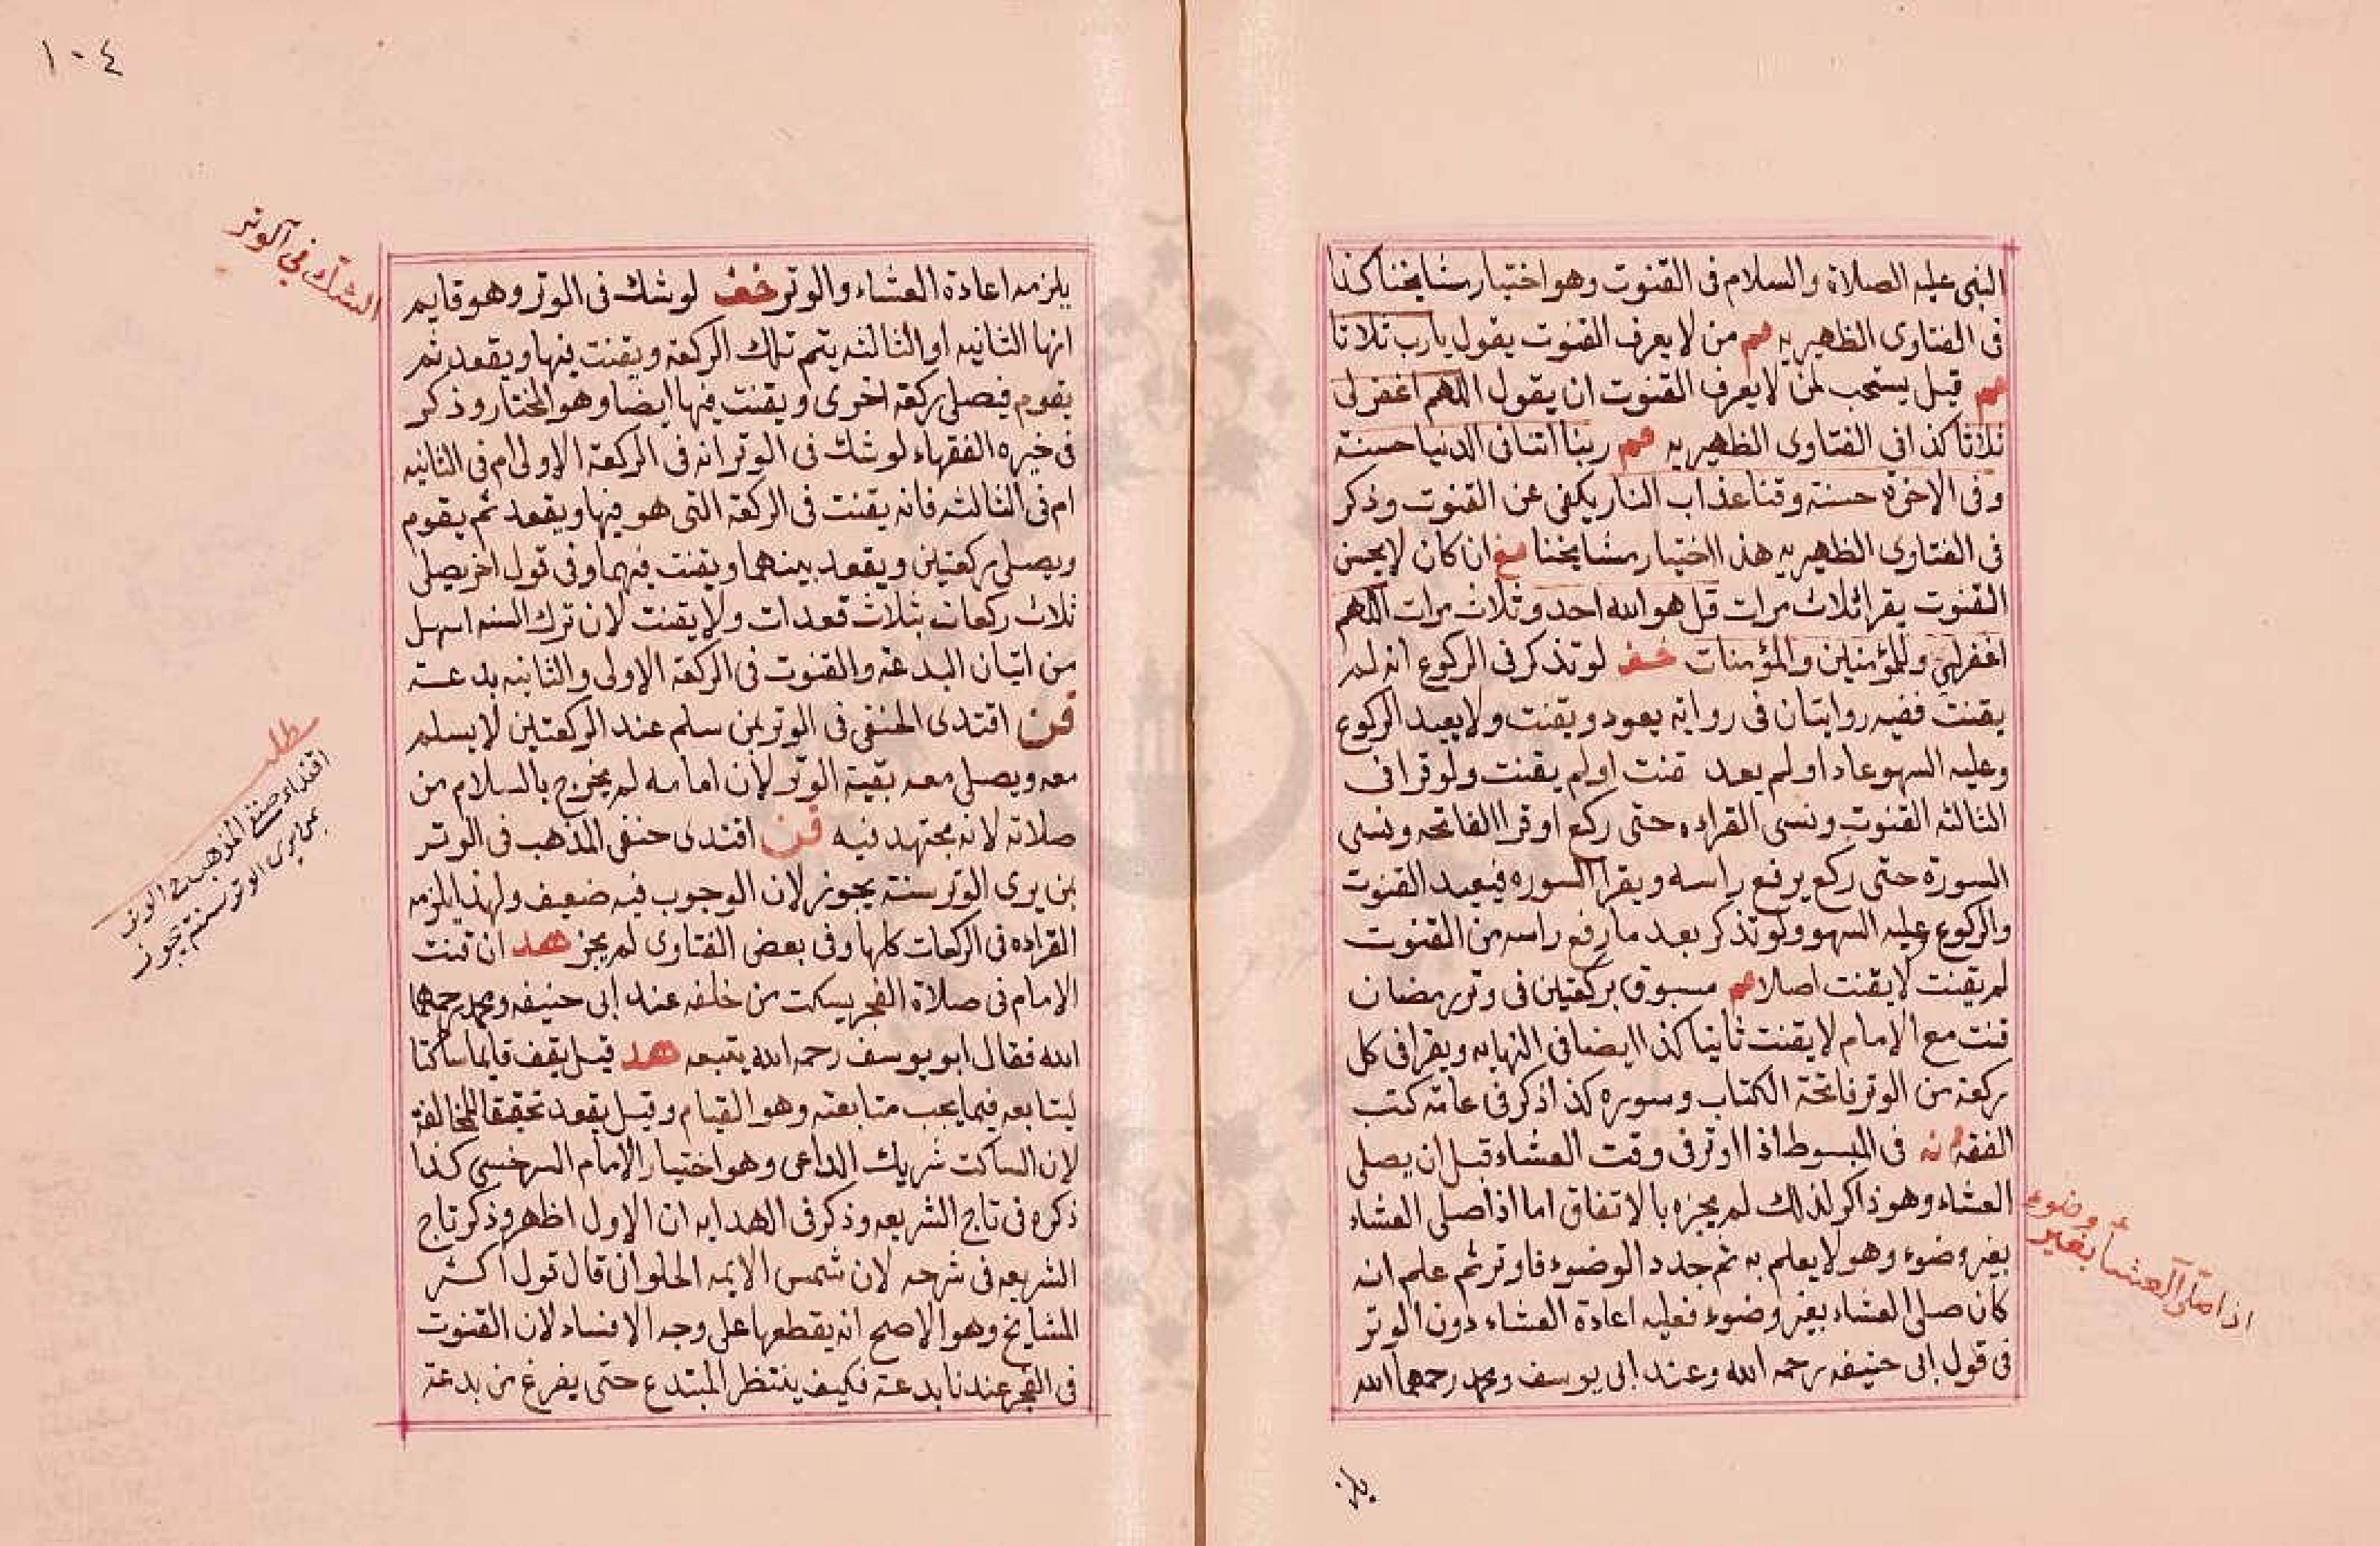 النبى عليه الصلاة والسلام فى القنوت وهو اختيار مشايخنا كذا
فى الفتاوى الظهيريه هم من لا يعرف القنوت يقول يارب ثلاثا
هم قيل يستحب لمن لا يعرف القنوت ان يقول اللهم اغفر لى
ثلاثا كذا فى الفتاوى الظهيريه هم ربنا اتنا فى الدنيا حسنة
وفى الاخرة حسنة وقنا عذاب النار يكفى عن القنوت وذكر
فى الفتاوى الظهيريه هذا اختيار مشايخنا مع ان كان لا يحسن
القنوت يقرا ثلاث مرات قل هو الله احد وثلاث مرات اللهم
اغفر لى وللمؤمنين والمؤمنات خف لو تذكر فى الركوع انه لم
يقنت ففيه روايتان فى روايه يعود ويقنت ولا يعيد الركوع
وعليه السهو عاد اولم يعد قنت اولم يقنت ولو قرا فى
الثالثه القنوت ونسى القراءه حتى ركع او قرا الفاتحه ونسى
السورة حتى ركع يرفع راسه ويقرا السوره فيعيد القنوت
والركوع وعليه السهو ولو تذكر بعد ما رفع راسه من القنوت
لم يقنت لا يقنت اصلا هم مسبوق بركعتين فى وتر رمضان
قنت مع الامام لا يقنت ثانيا كذا ايضا فى النهايه ويقرا فى كل
ركعة من الوتر فاتحة الكتاب وسوره كذا ذكر فى عامة كتب
الفقه نه فى المبسوط اذا اوتر فى وقت العشاء قبل ان يصلى
العشاء وهو ذاكر لذلك لم يجزه بالاتفاق اما اذا صلى العشاء
بغير وضوء وهو لا يعلم به ثم جدد الوضوء فاوتر ثم علم انه
كان صلى العشاء بغير وضوء فعليه اعادة العشاء دون الوتر
فى قول ابى حنيفه رحمه الله وعند ابى يوسف ومحمد رحمهما الله
اذا صلى العشاء بغير وضوء
يلز
١٠٤
يلزمه اعادة العشاء والوتر خف لو شك فى الوتر وهو قايم
انها الثانيه او الثالثه يتم تلك الركعة ويقنت فيها ويقعد ثم
يقوم فيصلى ركعة اخرى ويقنت فيها ايضا وهو المختار وذكر
فى خيره الفقهاء لو شك فى الوتر انه فى الركعة الاولى ام فى الثانيه
ام فى الثالثه فانه يقنت فى الركعة التى هو فيها ويقعد ثم يقوم
ويصلى ركعتين ويقعد بينهما ويقنت فيهما وفى قول اخر يصلى
ثلاث ركعات بثلاث قعدات ولا يقنت لان ترك السنه اسهل
من اتيان البدعة والقنوت فى الركعة الاولى والثانيه بدعة
فن اقتدى الحنفى فى الوتر بمن سلم عند الركعتين لا يسلم
معه ويصلى معه بقية الوتر لان امامه لم يخرج بالسلام من
صلاته لانه مجتهد فيه فن اقتدى حنفى المذهب فى الوتر
بمن يرى الوتر سنة يجوز لان الوجوب فيه ضعيف ولهذا يلزمه
القراءه فى الركعات كلها وفى بعض الفتاوى لم يجز هد ان قنت
الامام فى صلاة الفجر يسكت من خلفه عند ابى حنيفه ومحمد رحمهما
الله فقال ابو يوسف رحمه الله يتبعه هد قيل يقف قايما ساكتا
ليتابعه فيما يجب متابعته وهو القيام وقيل يقعد تحقيقا للمخالفة
لان الساكت شريك الداعى وهو اختيار الامام السرخسى كذا
ذكره فى تاج الشريعه وذكر فى الهدايه ان الاول اظهر وذكر تاج
الشريعه فى شرحه لان شمس الايمه الحلوانى قال قول اكثر
المشايخ وهو الاصح انه يقطعها على وجه الافساد لان القنوت
فى الفجر عندنا بدعة فكيف ينتظر المبتدع حتى يفرغ من بدعة
الشك فى الوتر
مطلب
اقتداء حنفى المذهب فى الوتر
بمن يرى الوتر سنة يجوز